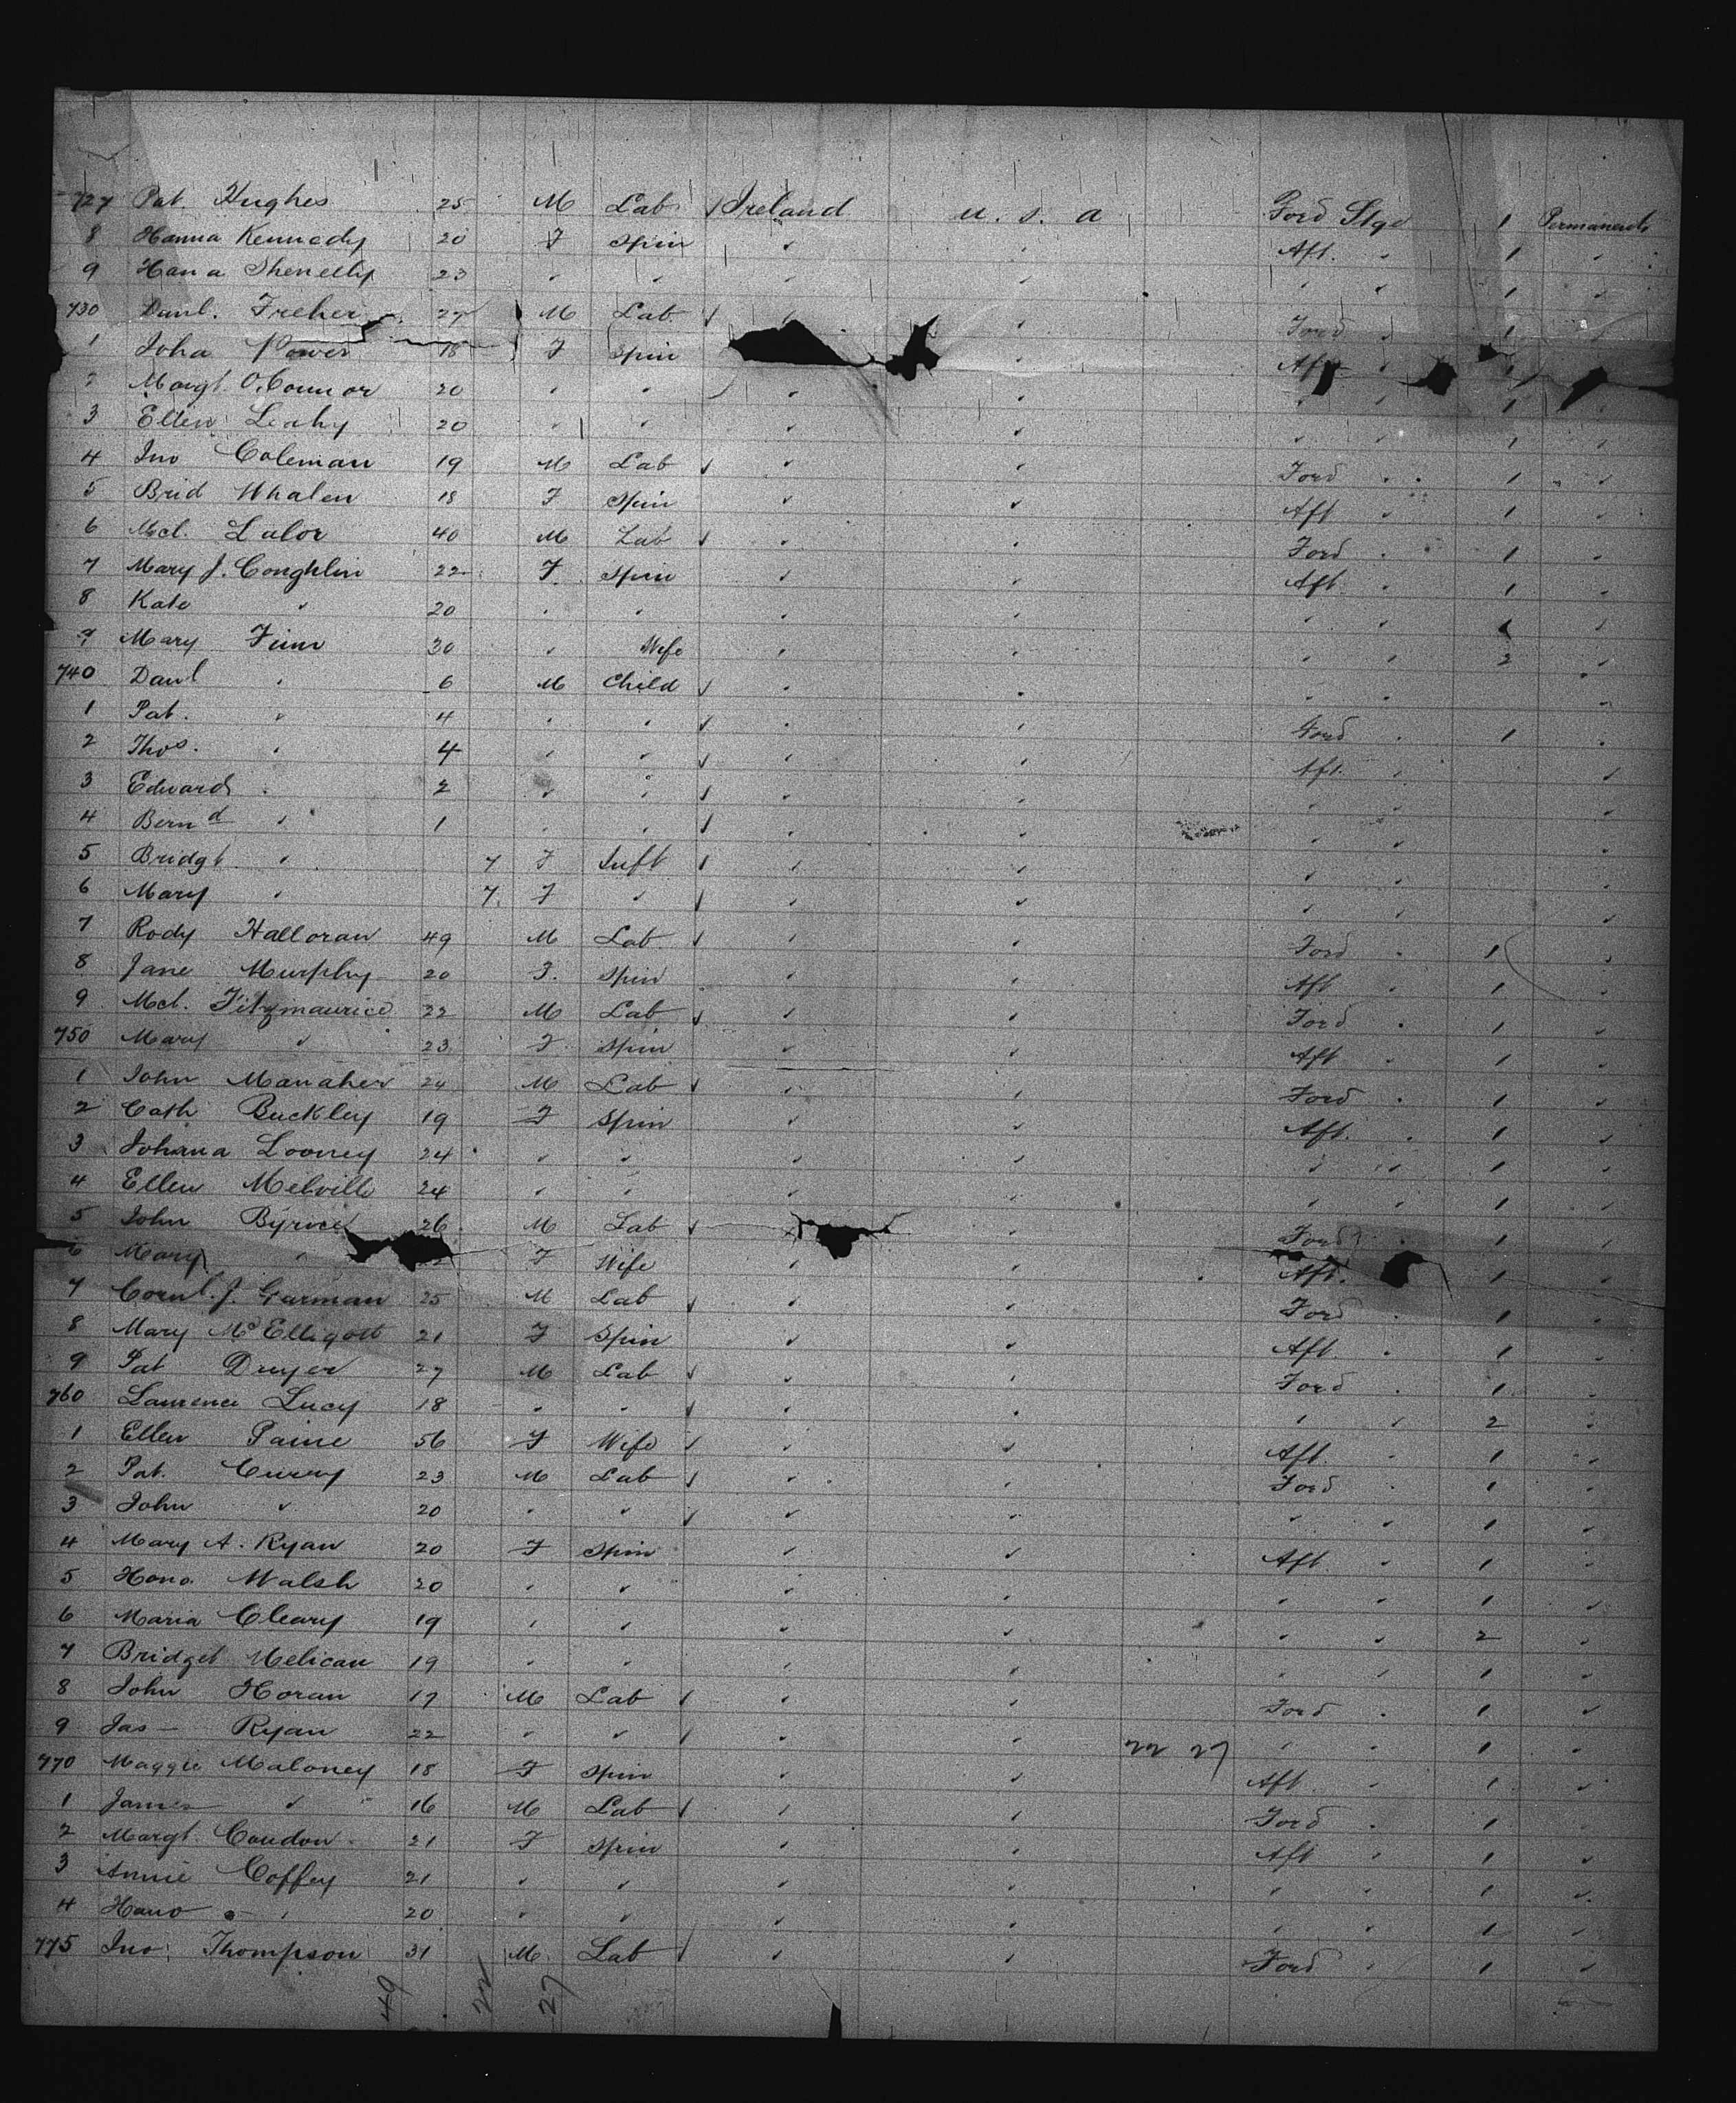 727 Pat. Hughes 25 M Lab Ireland U. S. A Ford Stge 1 Permanently
8 Hanna Kennedy 20 F Spin " " Aft. " 1 "
9 Hana 23 " " " " " " 1 "
730 Danl. 27 M Lab " " Ford " 1
1 Joha Power 18 F Spin " Aft " 1
2 Margt. O'Connor 20 " " " " " " 1 "
3 Ellen Leahy 20 " " " " " " 1 "
4 Jno Coleman 19 M Lab " " Ford " 1 "
5 Brid Whalen 18 F Spin " " Aft " 1 "
6 Mcl. Lalor 40 M Lab " " Ford " 1 "
7 Mary J. Coughlin 22 F. Spin " " Aft " 1 "
8 Kate " 20 " " " " " " 1 "
9 Mary Finn 30 " Wife " " " " 2 "
740 Danl " 6 M Child " " " " "
1 Pat. " 4 " " " " Ford " 1 "
2 Thos. " 4 " " " " Aft. " "
3 Edward " 2 " " " " " " "
4 Bernd " 1 " " " " " " "
5 Bridgt " 7 F Inft " " " " "
6 Mary " 7. F " " " " " "
7 Rody Halloran 49 M Lab. " " Ford " 1 "
8 Jane Murphy 20 F. Spin " " Aft " 1 "
9 Mcl. Fitzmaurice 22 M Lab " " Ford " 1 "
750 Mary " 23 F. Spin " " Aft " 1 "
1 John Manaher 24 M Lab " " Ford " 1 "
2 Cath Buckley 19 F Spin " " Aft. " 1 "
3 Johana Looney 24 " " " " " " 1 "
4 Ellen Melville 24 " " " " " " 1 "
5 John 26 M Lab " " Ford " 1 "
6 Mary " F Wife " " Aft. 1 "
7 Cornl. J. Garman 25 M Lab " " Ford " 1 "
8 Mary McElligott 21 F Spin " " Aft. " 1 "
9 Pat Dwyer 27 M Lab " " Ford " 1 "
760 Laurence Lucy 18 " " " " " " 2 "
1 Ellen Paine 56 F Wife " " Aft. " 1 "
2 Pat. Curry 23 M Lab " " Ford " 1 "
3 John " 20 " " " " " " 1 "
4 Mary A. Ryan 20 F Spin " " Aft. " 1 "
5 Hano. Walsh 20 " " " " " " 1 "
6 Maria Cleary 19 " " " " " " 2 "
7 Bridget Melican 19 " " " " " " 1 "
8 John Horan 17 M Lab " " Ford " 1 "
9 Jas Ryan 22 " " " " 22 27 " " 1 "
770 Maggie Maloney 18 F Spin " " Aft " 1 "
1 James " 16 M Lab " " Ford " 1 "
2 Margt. Condon 21 F Spin " " Aft " 1 "
3 Annie Coffey 21 " " " " " " 1 "
4 Hano " 20 " " " " " " 1 "
775 Jno. Thompson 31 M. Lab " " Ford " 1 "
49 22 27